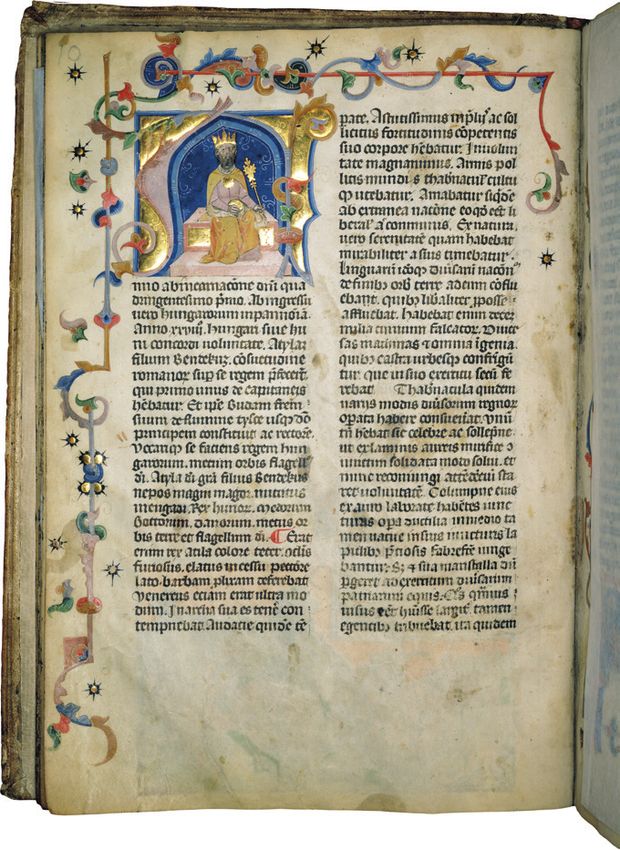 nno ab incarnacōne dīni qua
dringentesimo p̄mo. Ab ingressu
uero hungarorum in pannoniā.
Anno .xxviii. hungari siue hu
ni concordi uoluntate. Atylā
filium Bendekuz. cōsuetudine
romanorū sup̄ se regem p̄fecerūt.
qui primo unus de capitaneis
hēbatur. Et ip̄e Budam frēm
suum de flumine tysce usq̨ dō
principem constituit ac rectorē.
Vocansq̨ se faciens regem hun
garorum. metum orbis flagellū
dī. Atyla dī grā filius Bendekuz
nepos magni magor. nutritus
inengadi. Rex hunor̄. medorum
Gottorum. danorum. metus or
bis terre et flagellum dī. Erat
enim rex atila colore teter. oclīs
furiosus. elatus incessu pectore
lato. barbam. plixam deferebat
Venereus eciam erat ultra mo
dum. In archa sua es tenēr con
tempnebat. Audacie quidē tē
pate. Astutissimus inp̄lijs ac sol
licitus fortitudinis cōpetentis
suo corpore hēbatur. In uolun
tate magnanimus. Armis pol
litis mundis thabnaculis cultu
q̨ utebatur. Amabatur siq̄de
ab extranea nacōne eo qd̄ eēt li
beral' ac communis. Ex natura
uero seueritate quam habebat
mirabiliter a suis timebatur.
Linguarū itaq̨ diūsarū nacōnes
de finibꝫ orbis terre ad eum cōflu
ebant. quibꝫ libāliter p̄ posse
affluebat. habebat enim decem
milia curruum falcatorum. Diuer
sas machinas et omnia īgenia.
quibꝫ castra urbesq̨ confrīgūt
tur. que in suo exercitu secū fe
rebat. Thabnacula quidem
uarijs modis diūsorum regnor̄
opata habere consueuerat. Vnū
tn̄ hēbat sic celebre ac sollepne
ut ex laminis aureis mirifice 9
iunctim solidata modo solui. et
nunc reconiungi ad tēdētiū sta
ret uoluntatē. Columpne eius
ex auro laborate habētes iunc
turas opa ductilia in medio ta
men uacue in suis iuncturis la
pidibꝫ p̄ciosis fabrefcē iunge
bantur. Sꝫ et sua marstalla dū
p̄geret ad exercitum diūsarum
patriarum equis. Q̄s q̄mius
uisus eēt hūisse largiter. tamen
egentibꝫ tribuebat. ita quidem